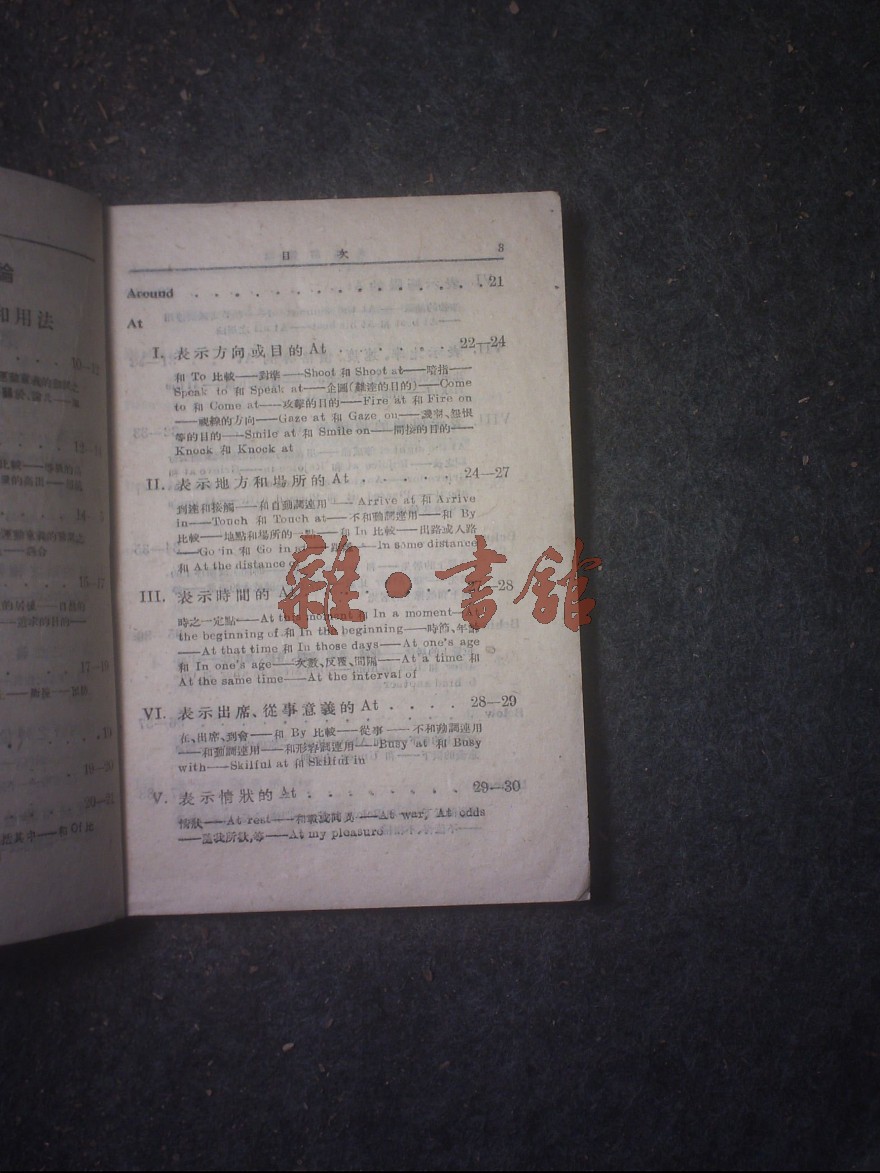 論
和用法
10—12
12—14
14—
15—17
17—18
19
18—20
20—21
目 次 3
Around . . . . . . . . . . . . . . . . 21
At
I. 表示方向或目的 At . . . . . . . 22—24
和 To 比較——對準——Shoot 和 Shoot at——暗指——
Speak to 和 Speak at——企圖(難達的目的)——Come
to 和 Come at——攻擊的目的——Fire at 和 Fire on
——視線的方向——Gaze at 和 Gaze on——譏笑、怨恨
等的目的——Smile at 和 Smile on——間接的目的——
Knock 和 Knock at
II. 表示地方和場所的 At . . . . . 24—27
到達和接觸——和自動詞連用——Arrive at 和 Arrive
in——Touch 和 Touch at——不和動詞連用——和 By
比較——地點和場所的一點——和 In 比較——出路或入路
——Go in 和 Go in at——距離——In some distance
和 At the distance of
III. 表示時間的 At —28
時之一定點——At this moment 和 In a moment——
the beginning of 和 In the beginning——時節、年齡
——At that time 和 In those days——At one's age
和 In one's age——次數、反覆、間隔——At a time 和
At the same time——At the interval of
VI. 表示出席、從事意義的 At . . . . 28—29
在、出席、到會——和 By 比較——從事——不和動詞連用
——和動詞連用——和形容詞連用——Busy at 和 Busy
with——Skilful at 和 Skilful in
V. 表示情狀的 At . . . . . . . . 29—30
情狀——At rest——At war, At odds
——At my pleasure
雜·書館